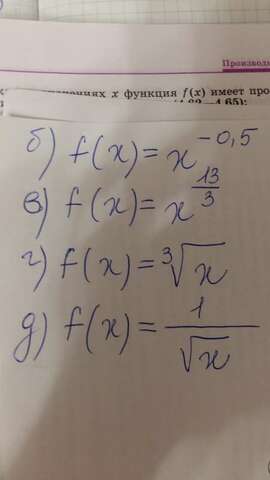 Производн
значениях x функция f(x) имеет про
б) f(x) = x^{-0,5}
в) f(x) = x^{\frac{13}{3}}
г) f(x) = \sqrt[3]{x}
д) f(x) = \frac{1}{\sqrt{x}}